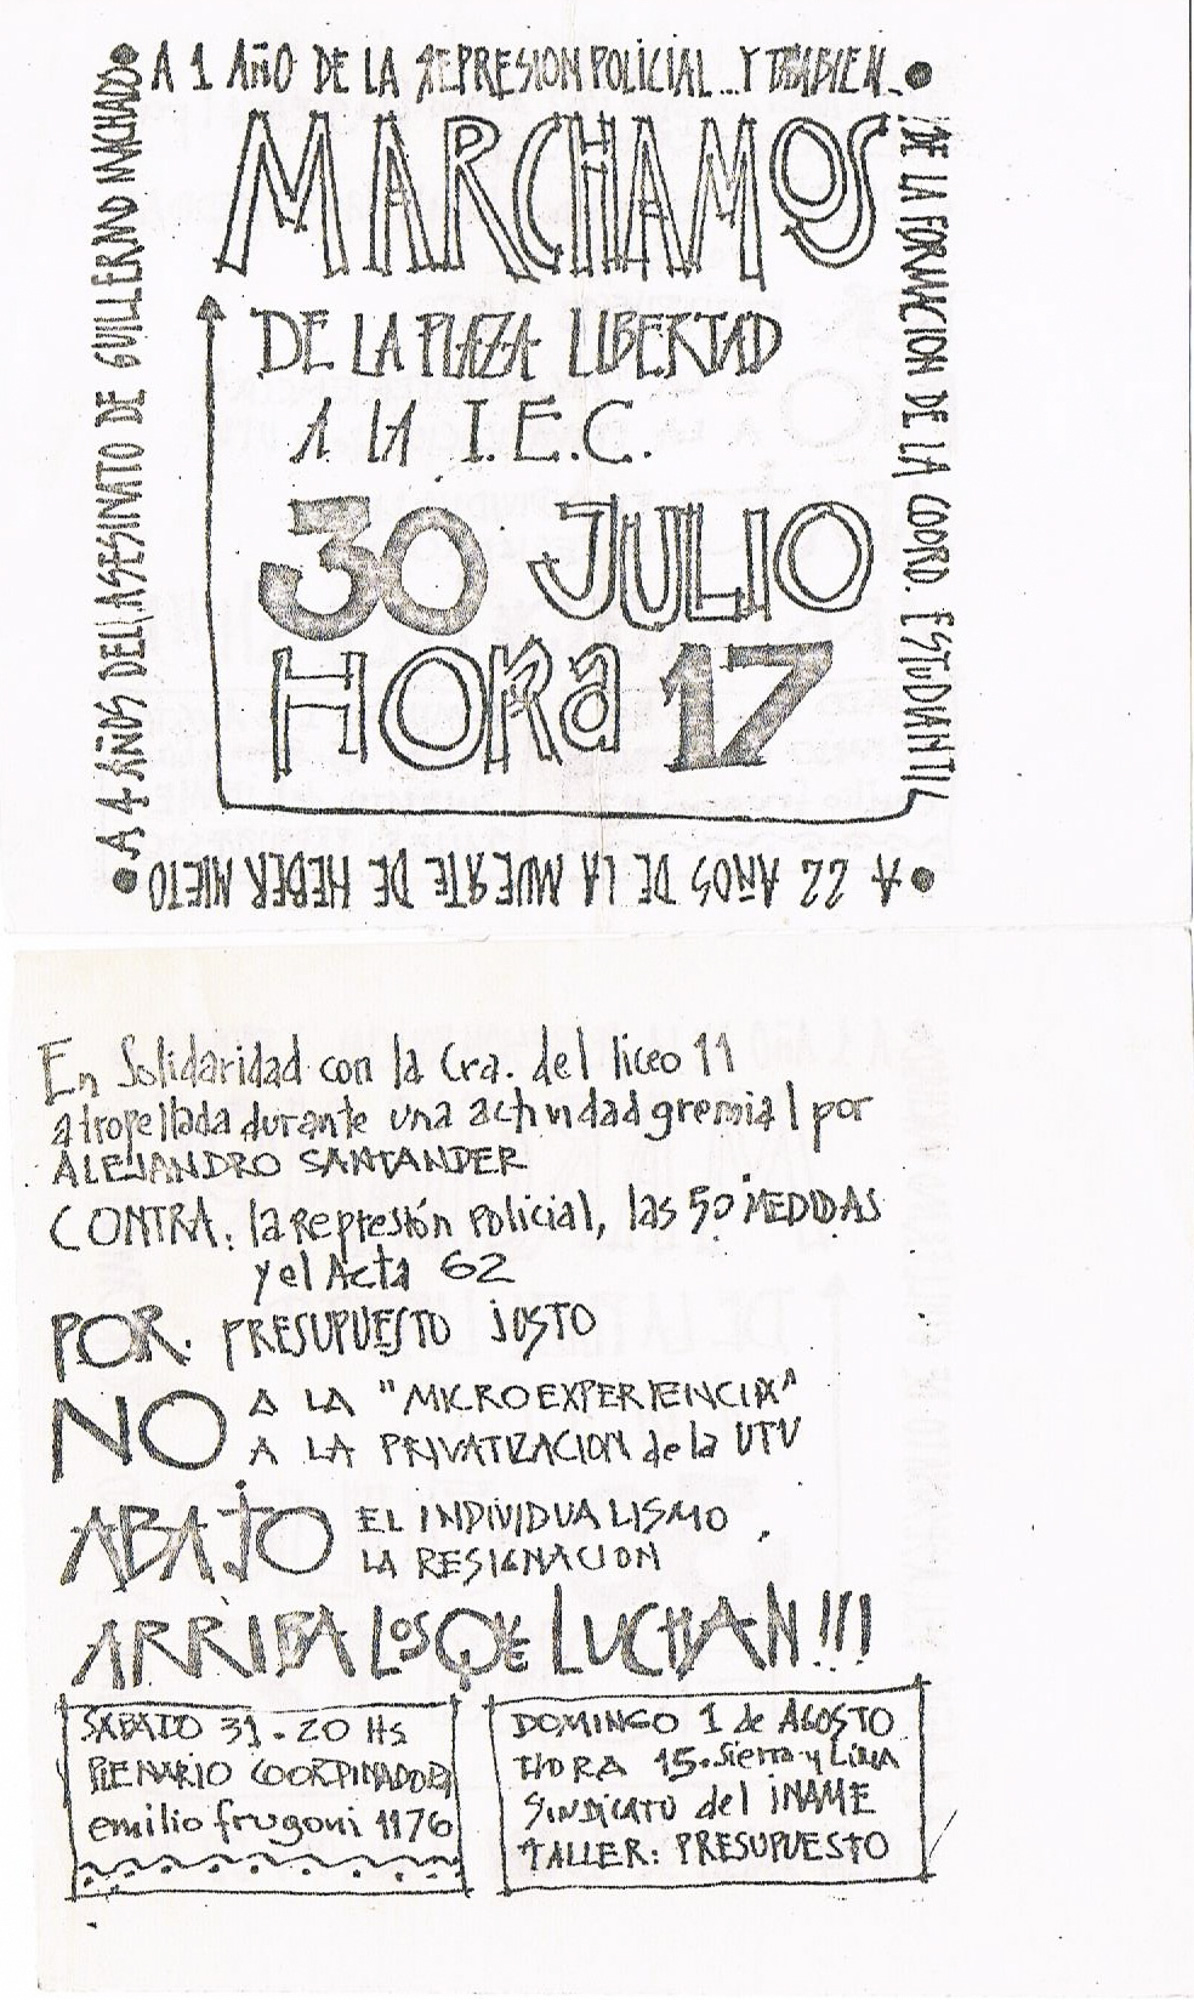 ● A 1 AÑO DE LA REPRESION POLICIAL... Y TAMBIEN... ●
¡DE LA FORMACION DE LA COORD. ESTUDIANTIL
● A 22 AÑOS DE LA MUERTE DE HEBER NIETO
● A 4 AÑOS DEL ASESINATO DE GUILLERMO MACHADO
MARCHAMOS
DE LA PLAZA LIBERTAD
A LA I.E.C.
30 JULIO
HORA 17
En Solidaridad con la Cra. del liceo 11
atropellada durante una actividad gremial por
ALEJANDRO SANTANDER
CONTRA: la Represión Policial, las 50 MEDIDAS
y el Acta 62
POR: PRESUPUESTO JUSTO
NO A LA "MICROEXPERIENCIA"
A LA PRIVATIZACION de la UTU
ABAJO EL INDIVIDUALISMO
LA RESIGNACION
ARRIBA LOS QUE LUCHAN!!!
SABADO 31-20 Hs
PLENARIO COORDINADORA
emilio frugoni 1176
DOMINGO 1 de AGOSTO
HORA 15. Sierra y Lima
SINDICATO del INAME
TALLER: PRESUPUESTO